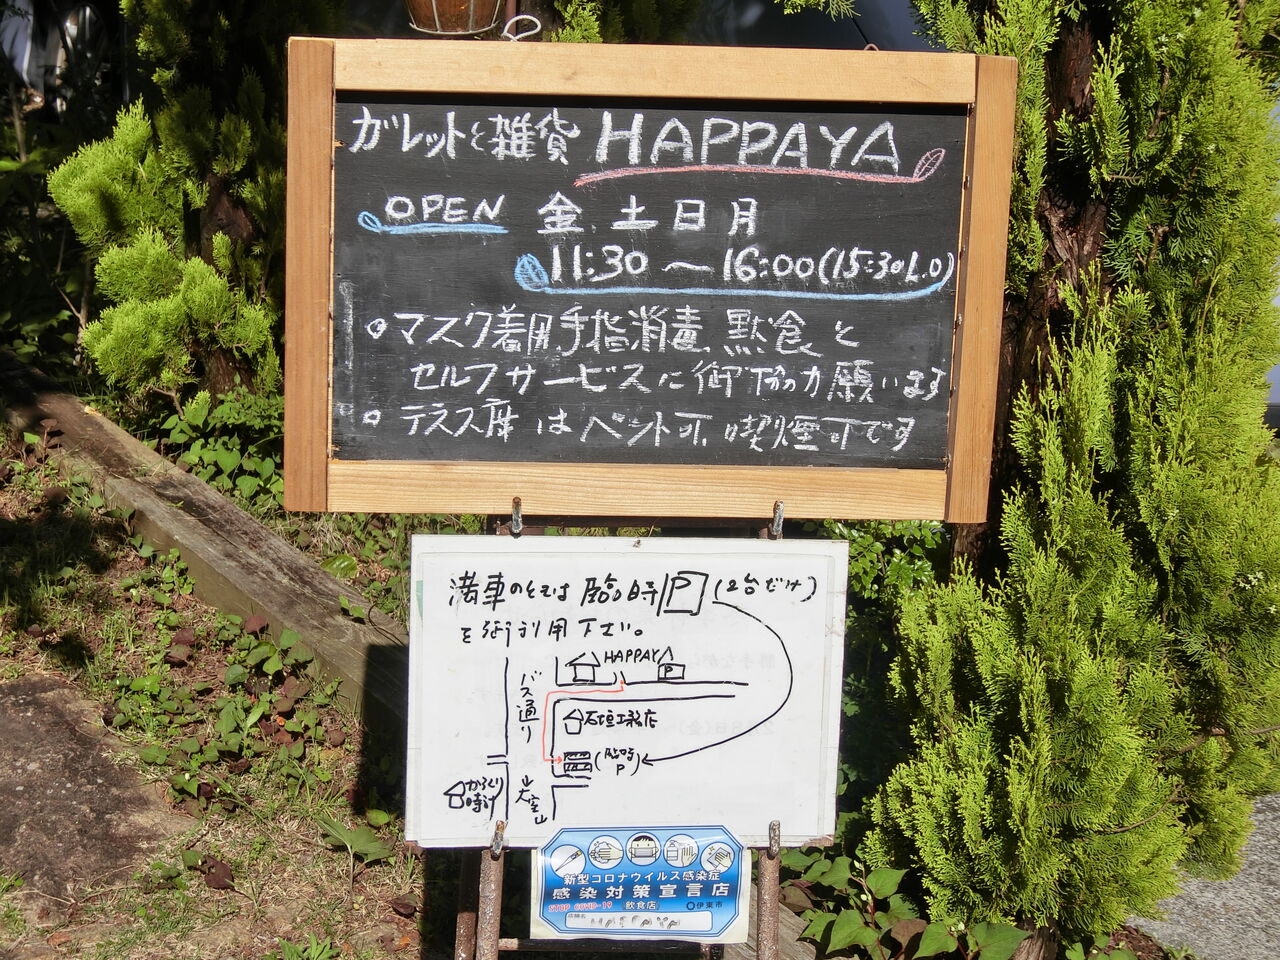 ガレットと雑貨 HAPPAYA
OPEN 金.土日月
11:30〜16:00(15:30L.O)
○マスク着用.手指消毒.黙食と
セルフサービスに御協力願います
○テラス席はペット可.喫煙可です
満車のときは臨時P(2台だけ)
を御利用下さい。
HAPPAYA
P
バス通り
石垣工務店
(臨時P)
からくり時計
↓大室山
新型コロナウイルス感染症
感染対策宣言店
STOP COVID-19 飲食店 伊東市
店舗名
HAPPAYA